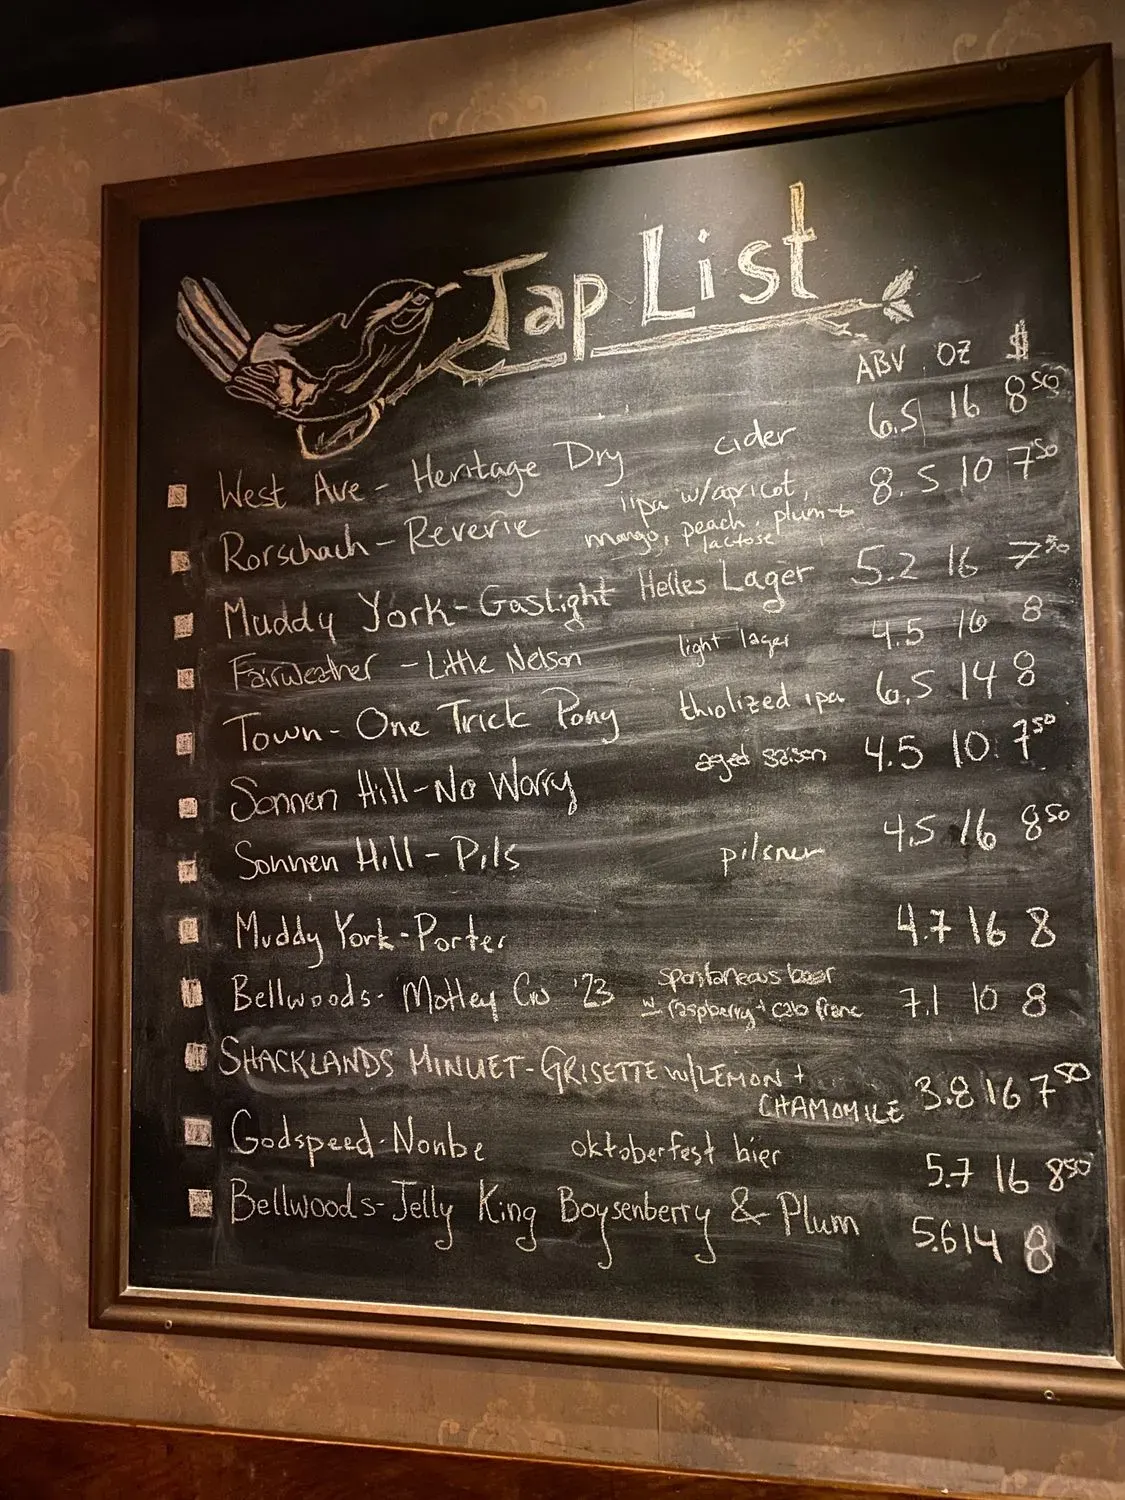 Tap List
ABV OZ $
West Ave - Heritage Dry cider 6.5 16 8 50
Rorschach - Reverie iipa w/apricot, mango, peach, plum + lactose 8.5 10 7 50
Muddy York - Gaslight Helles Lager 5.2 16 7 50
Fairweather - Little Nelson light lager 4.5 16 8
Town - One Trick Pony thiolized ipa 6.5 14 8
Sonnen Hill - No Worry aged saison 4.5 10 7 50
Sonnen Hill - Pils pilsner 4.5 16 8 50
Muddy York - Porter 4.7 16 8
Bellwoods - Motley Cru '23 spontaneous beer w/ raspberry + cab franc 7.1 10 8
SHACKLANDS MINUET - GRISETTE W/LEMON +
CHAMOMILE 3.8 16 7 50
Godspeed - Nonbe oktoberfest bier 5.7 16 8 50
Bellwoods - Jelly King Boysenberry & Plum 5.6 14 8